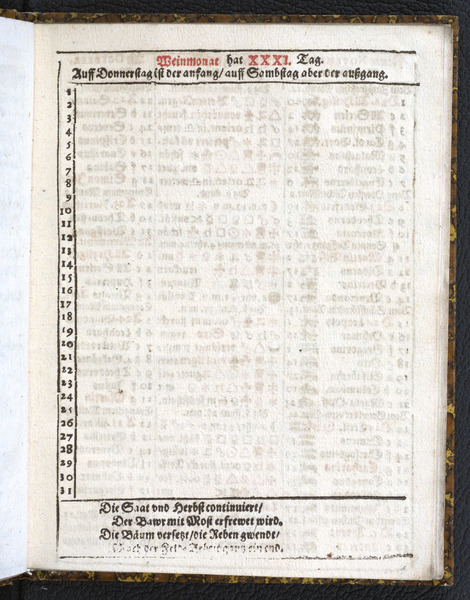 Weinmonat hat XXXI. Tag.
Auff Donnerstag ist der anfang/ auff Sambstag aber der außgang.
1
2
3
4
5
6
7
8
9
10
11
12
13
14
15
16
17
18
19
20
21
22
23
24
25
26
27
28
29
30
31
Die Saat vnd Herbst continuiert/
Der Bawr mit Most erfrewet wird.
Die Bäum versetzt/die Reben gwendt/
Nach der Feld Arbeit gantz ein end.